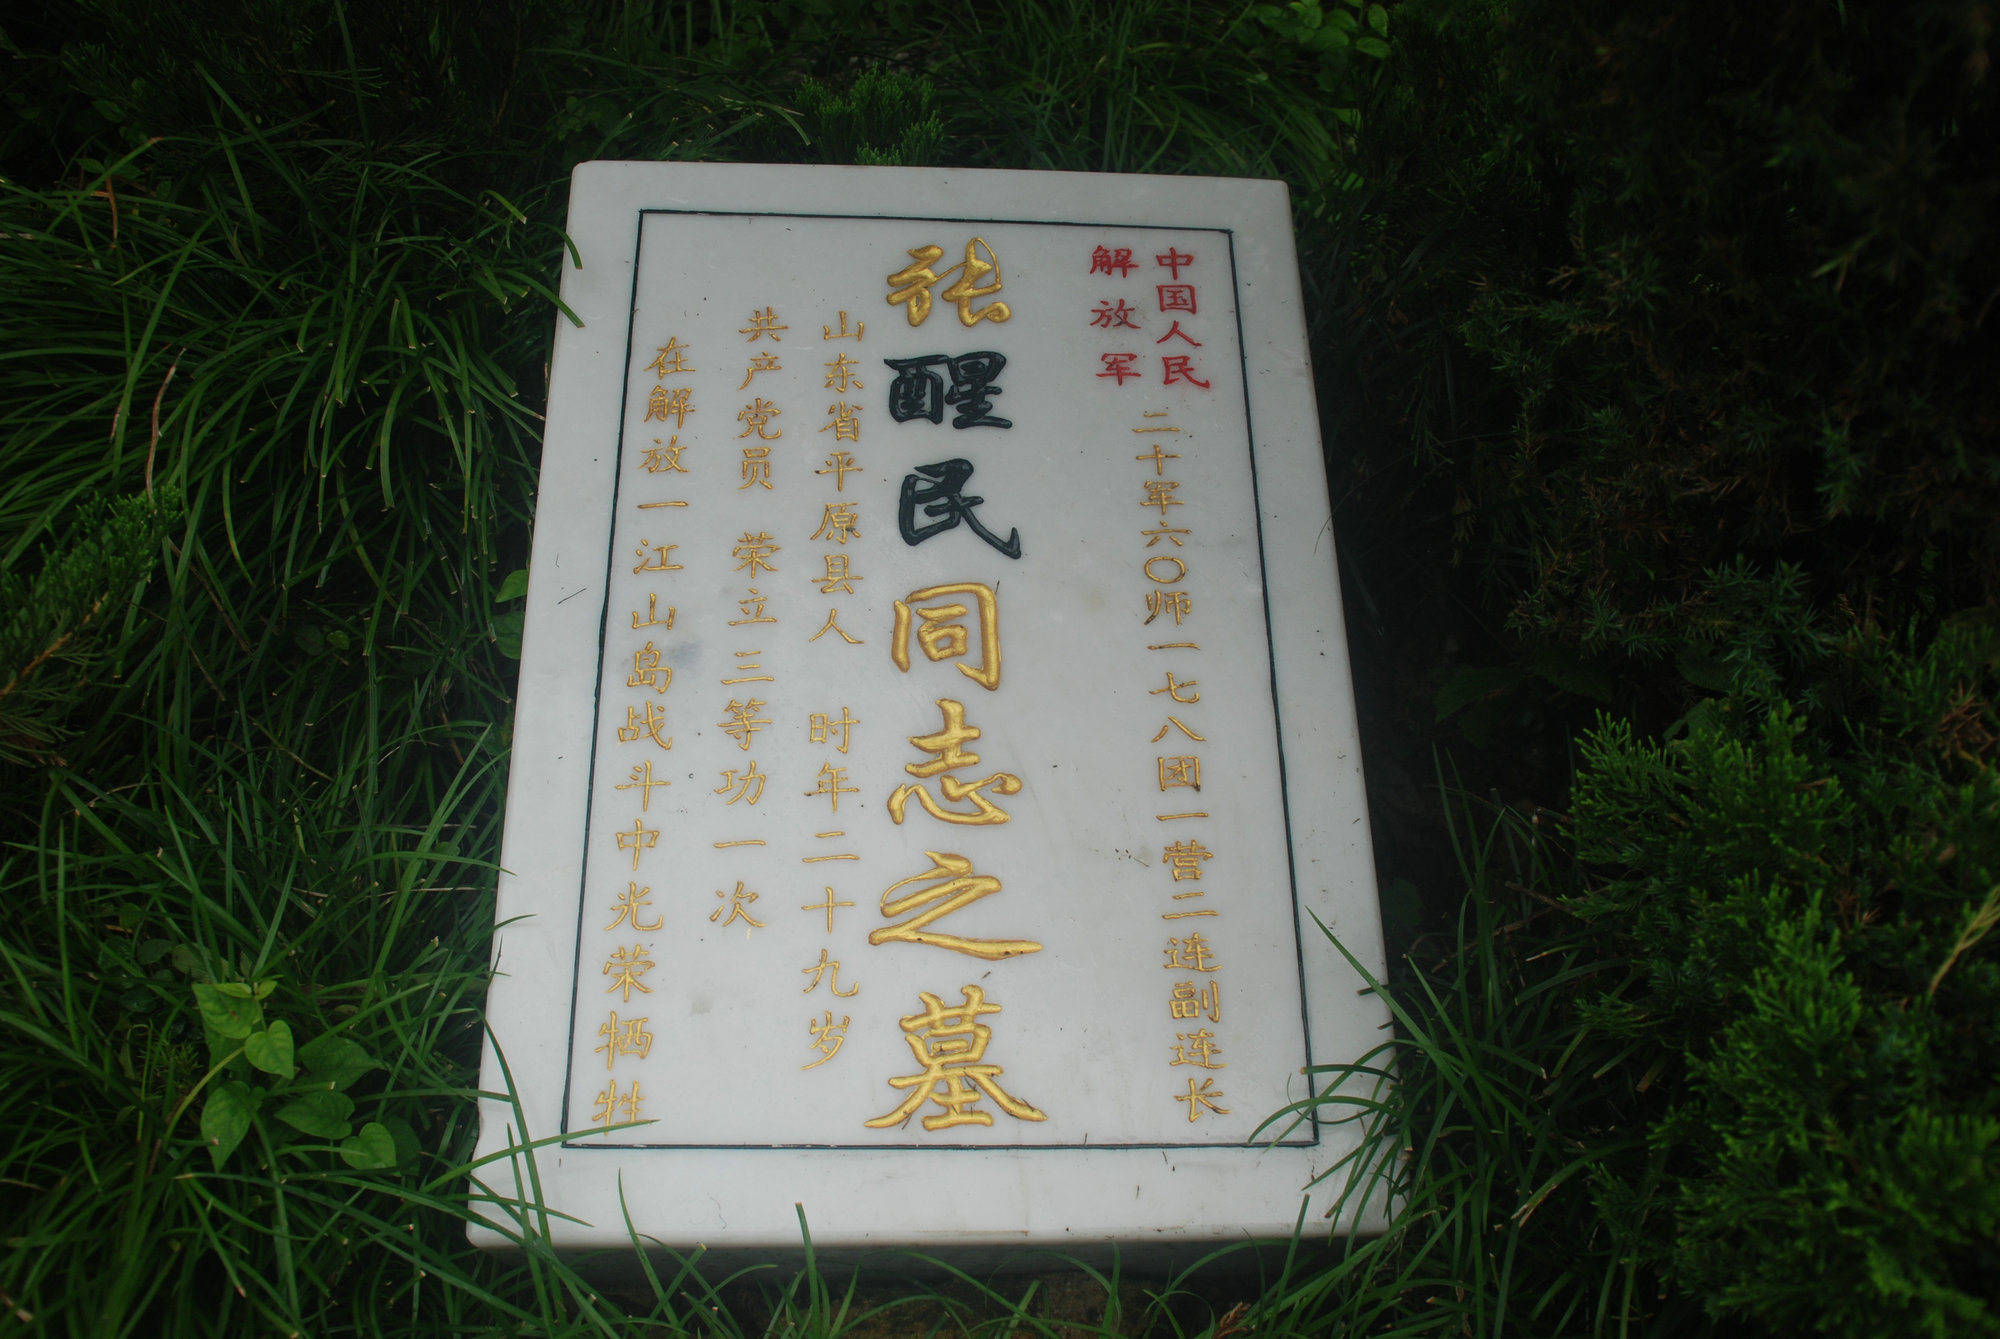 中国人民
解放军
二十军六〇师一七八团一营二连副连长
张醒民同志之墓
山东省平原县人 时年二十九岁
共产党员 荣立三等功一次
在解放一江山岛战斗中光荣牺牲